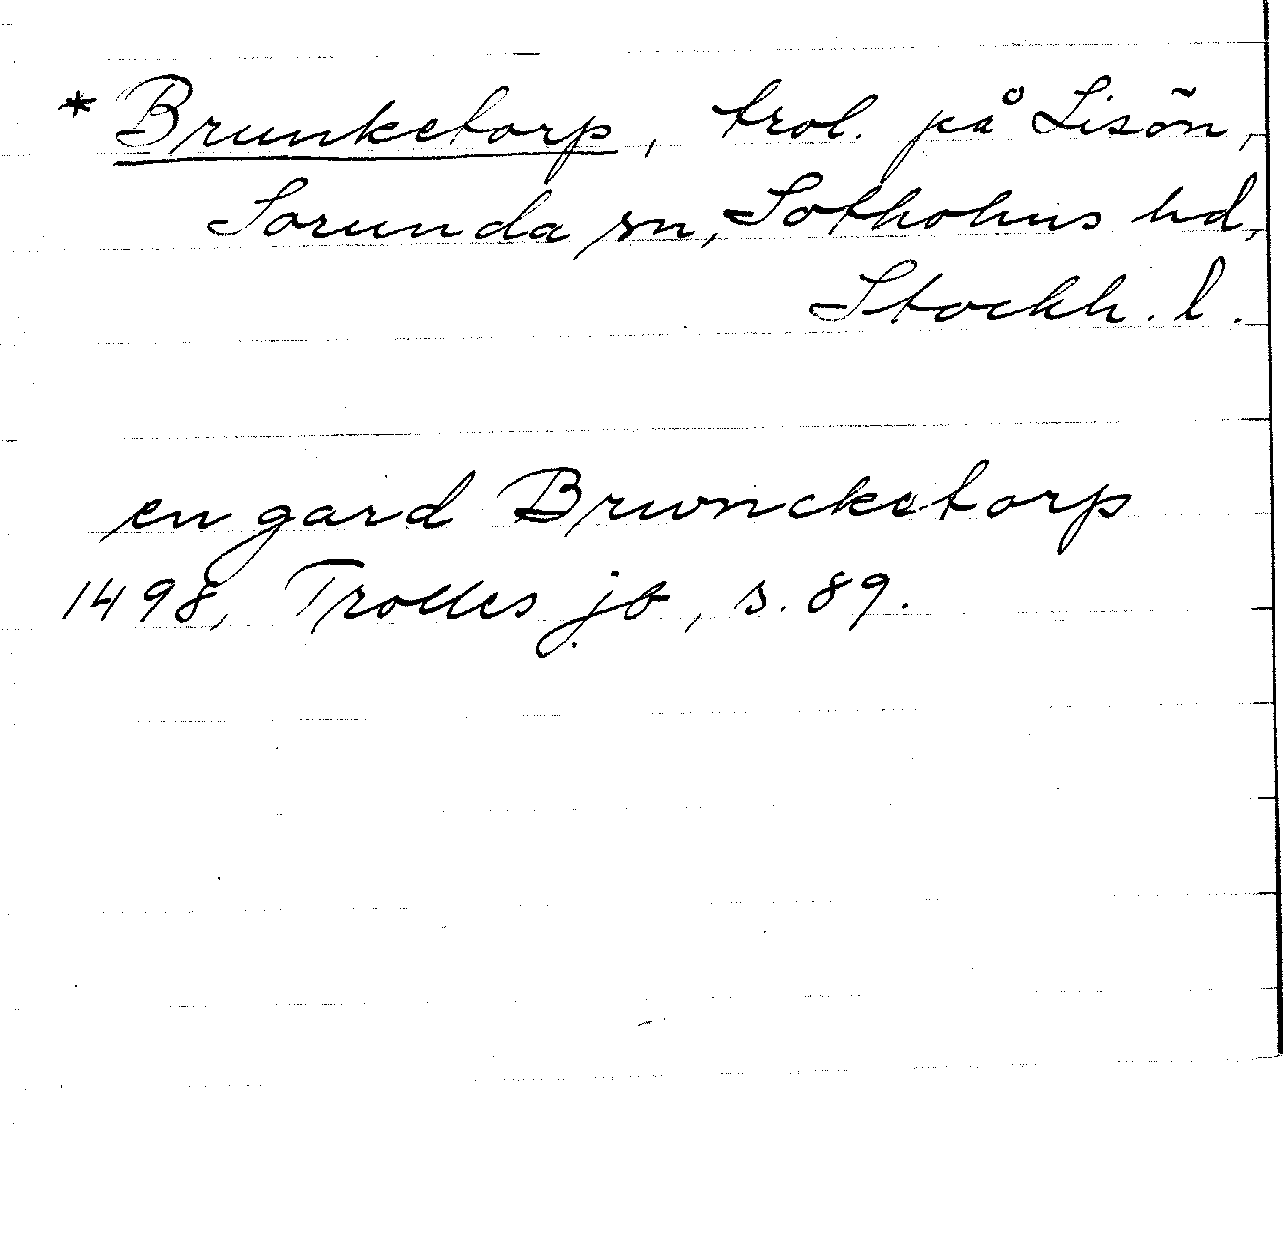 * Brunketorp, trol. på Lisön,
Sorunda sn, Sotholms hd,
Stockh. l.
en gard Brwncketorp
1498, Trolles jb, s. 89.